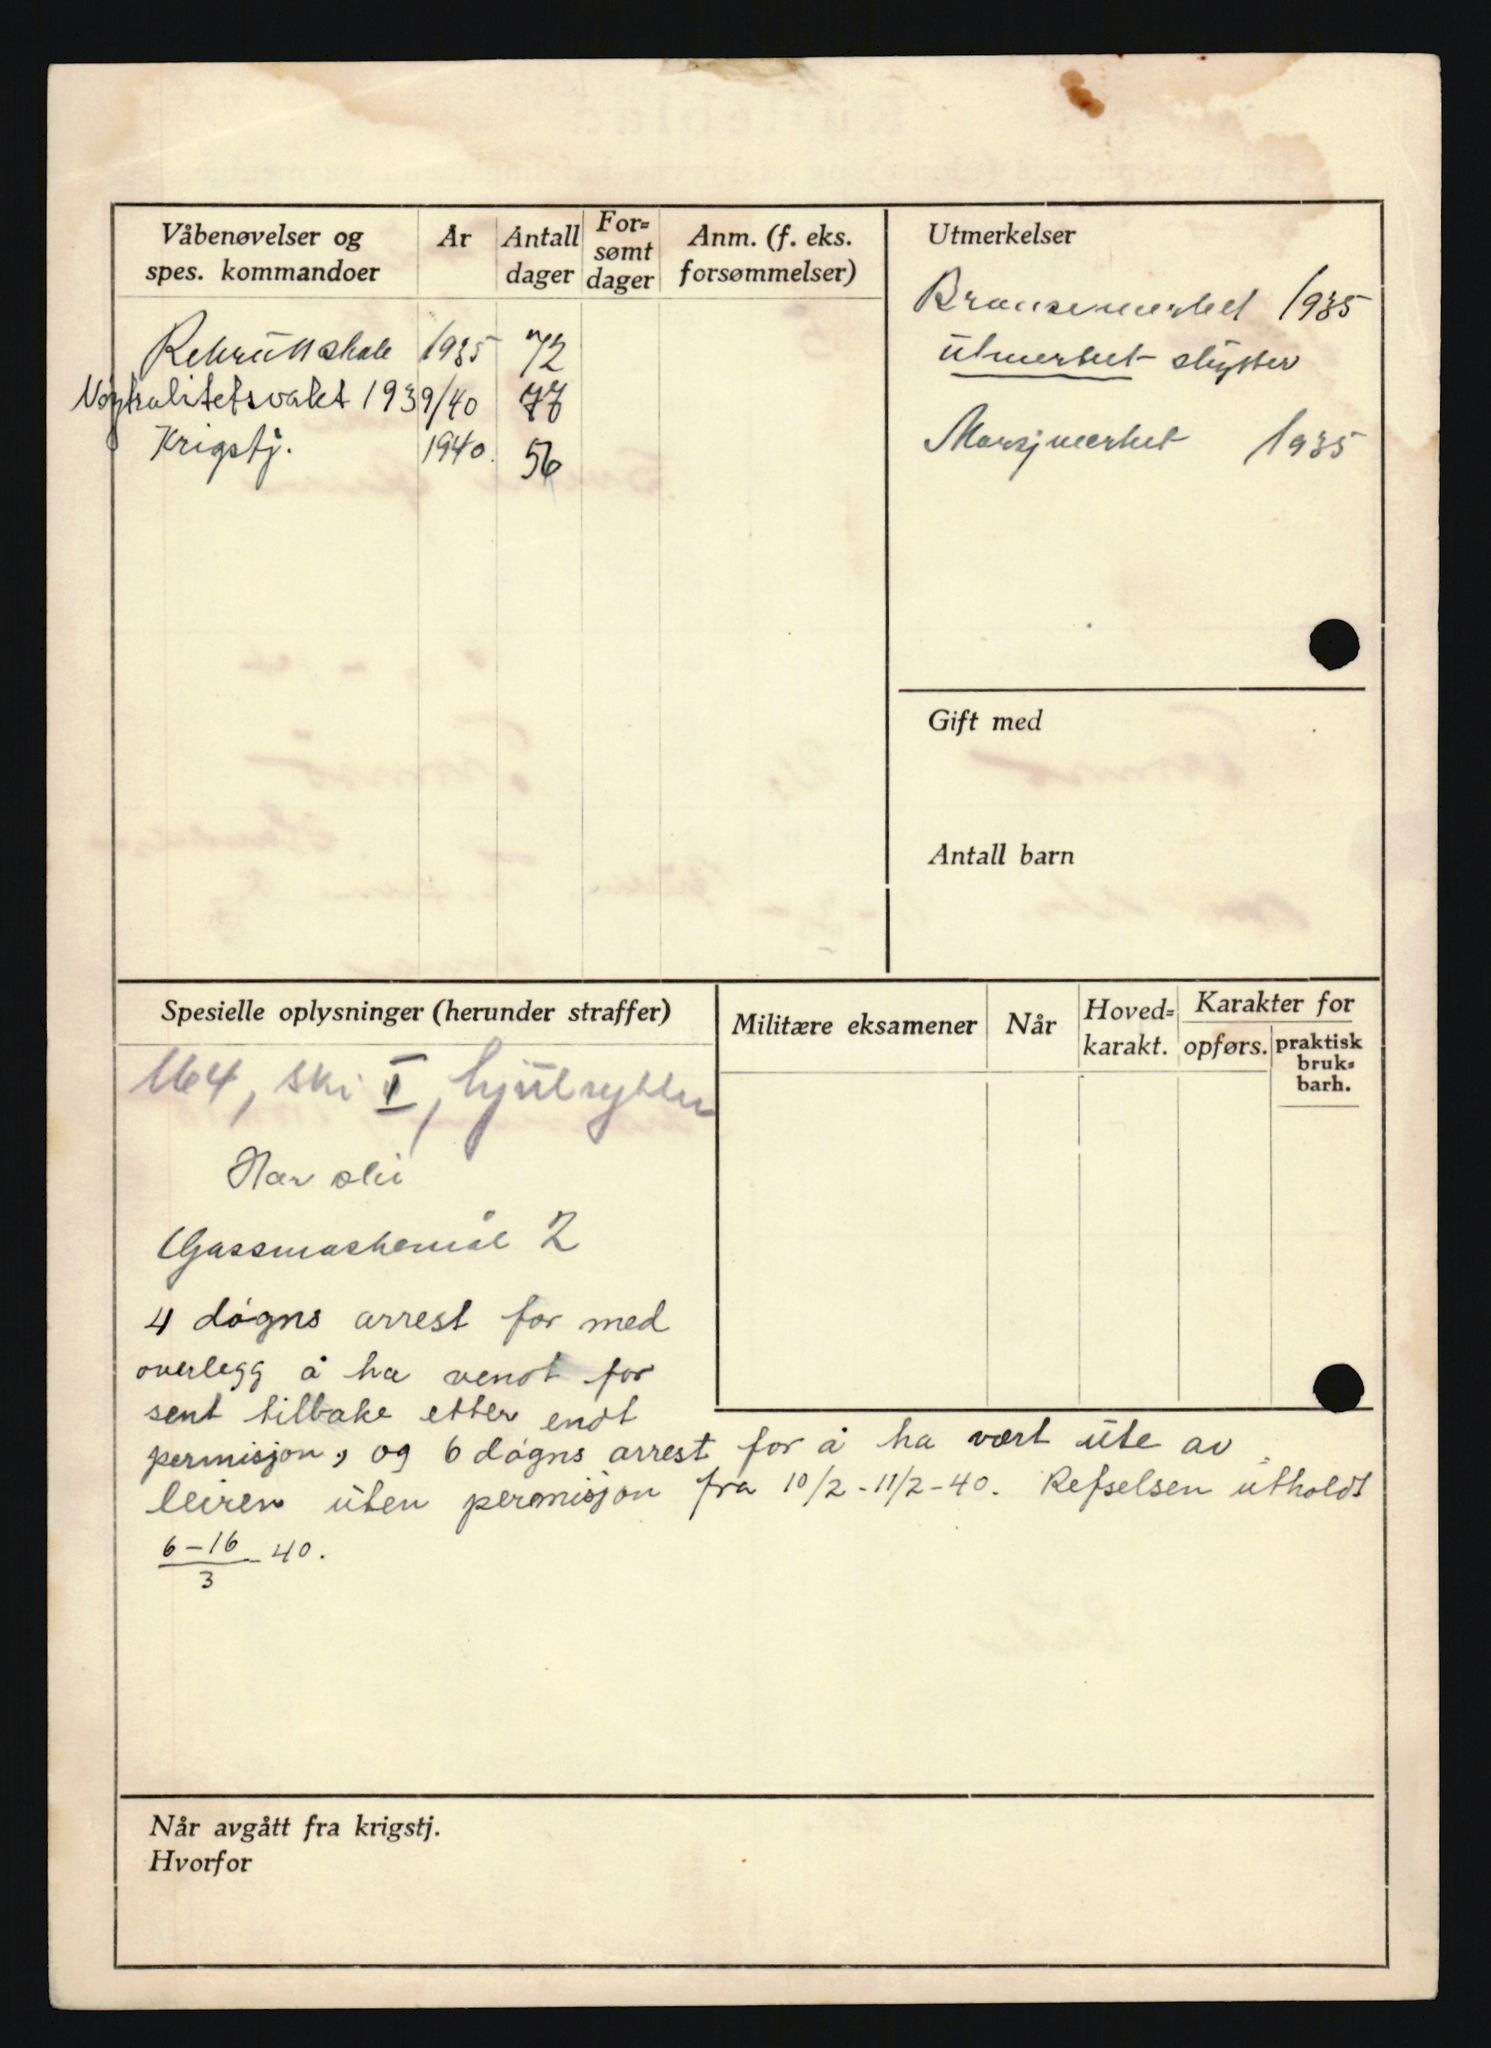 Våbenøvelser og spes. kommandoer
År
Antall dager
For=sømt dager
Anm. (f. eks. forsømmelser)
Rekruttskole 1935 72
Nøytralitetsvakt 1939/40 77
Krigstj. 1940. 56
Utmerkelser
Bronsemerket 1935
utmerket skytter
Marsjmerket 1935
Gift med
Antall barn
Spesielle oplysninger (herunder straffer)
164, ski I, hjulrytter
Har ski
Gassmaskemål 2
4 døgns arrest for med
overlegg å ha vendt for
sent tilbake etter endt
permisjon, og 6 døgns arrest for å ha vært ute av
leiren uten permisjon fra 10/2-11/2-40. Refselsen utholdt
6-16/3-40.
Militære eksamener
Når
Hoved=karakt.
Karakter for
opførs.
praktisk bruk=barh.
Når avgått fra krigstj.
Hvorfor